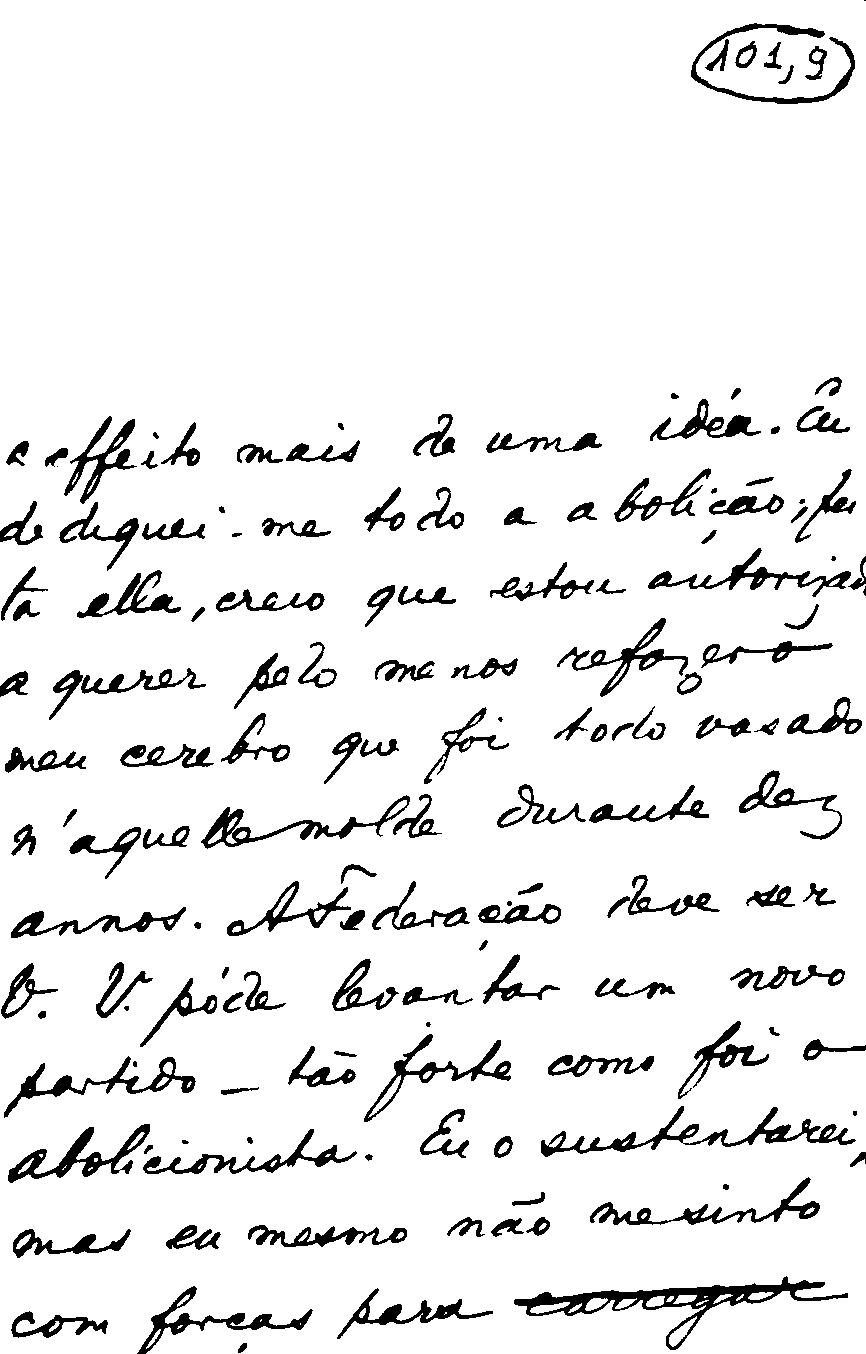 101,9
a effeito mais de uma idéa. Eu
dediquei-me todo a abolição; fei
ta ella, creio que estou autorizado
a querer pelo menos refazer o
meu cerebro que foi todo vasado
n'aquelle molde durante dez
annos. A Federação deve ser
V. V. póde levantar um novo
partido — tão forte como foi o
abolicionista. Eu o sustentarei,
mas eu mesmo não me sinto
com forças para carregar